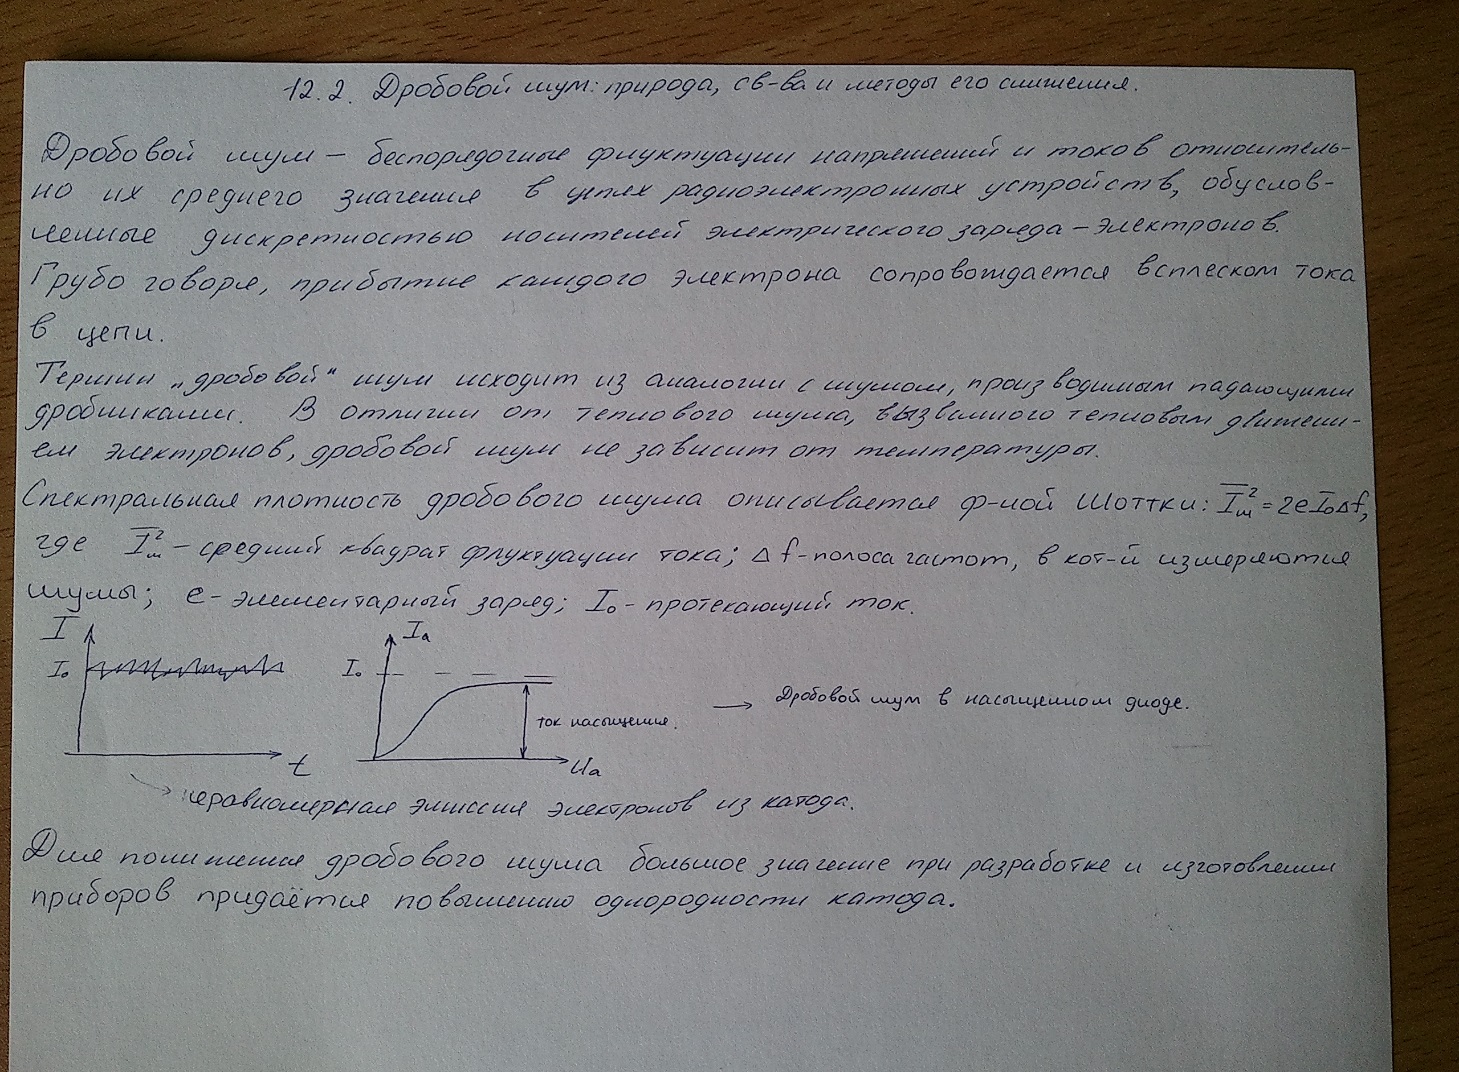 12.2. Дробовой шум: природа, св-ва и методы его снижения.
Дробовой шум – беспорядочные флуктуации напряжений и токов относитель-
но их среднего значения в цепях радиоэлектронных устройств, обуслов-
ленные дискретностью носителей электрического заряда – электронов.
Грубо говоря, прибытие каждого электрона сопровождается всплеском тока
в цепи.
Термин „дробовой“ шум исходит из аналогии с шумом, производимым падающими
дробинками. В отличии от теплового шума, вызванного тепловым движени-
ем электронов, дробовой шум не зависит от температуры.
Спектральная плотность дробового шума описывается ф-лой Шоттки: I̅²ш = 2eI₀Δf,
где I̅²ш – средний квадрат флуктуации тока; Δf - полоса частот, в кот-й измеряются
шумы; e - элементарный заряд; I₀ - протекающий ток.
I
I₀
t
Iа
I₀
ток насыщения.
Uа
→ Дробовой шум в насыщенном диоде.
неравномерная эмиссия электронов из катода.
Для понижения дробового шума большое значение при разработке и изготовлении
приборов придаётся повышению однородности катода.